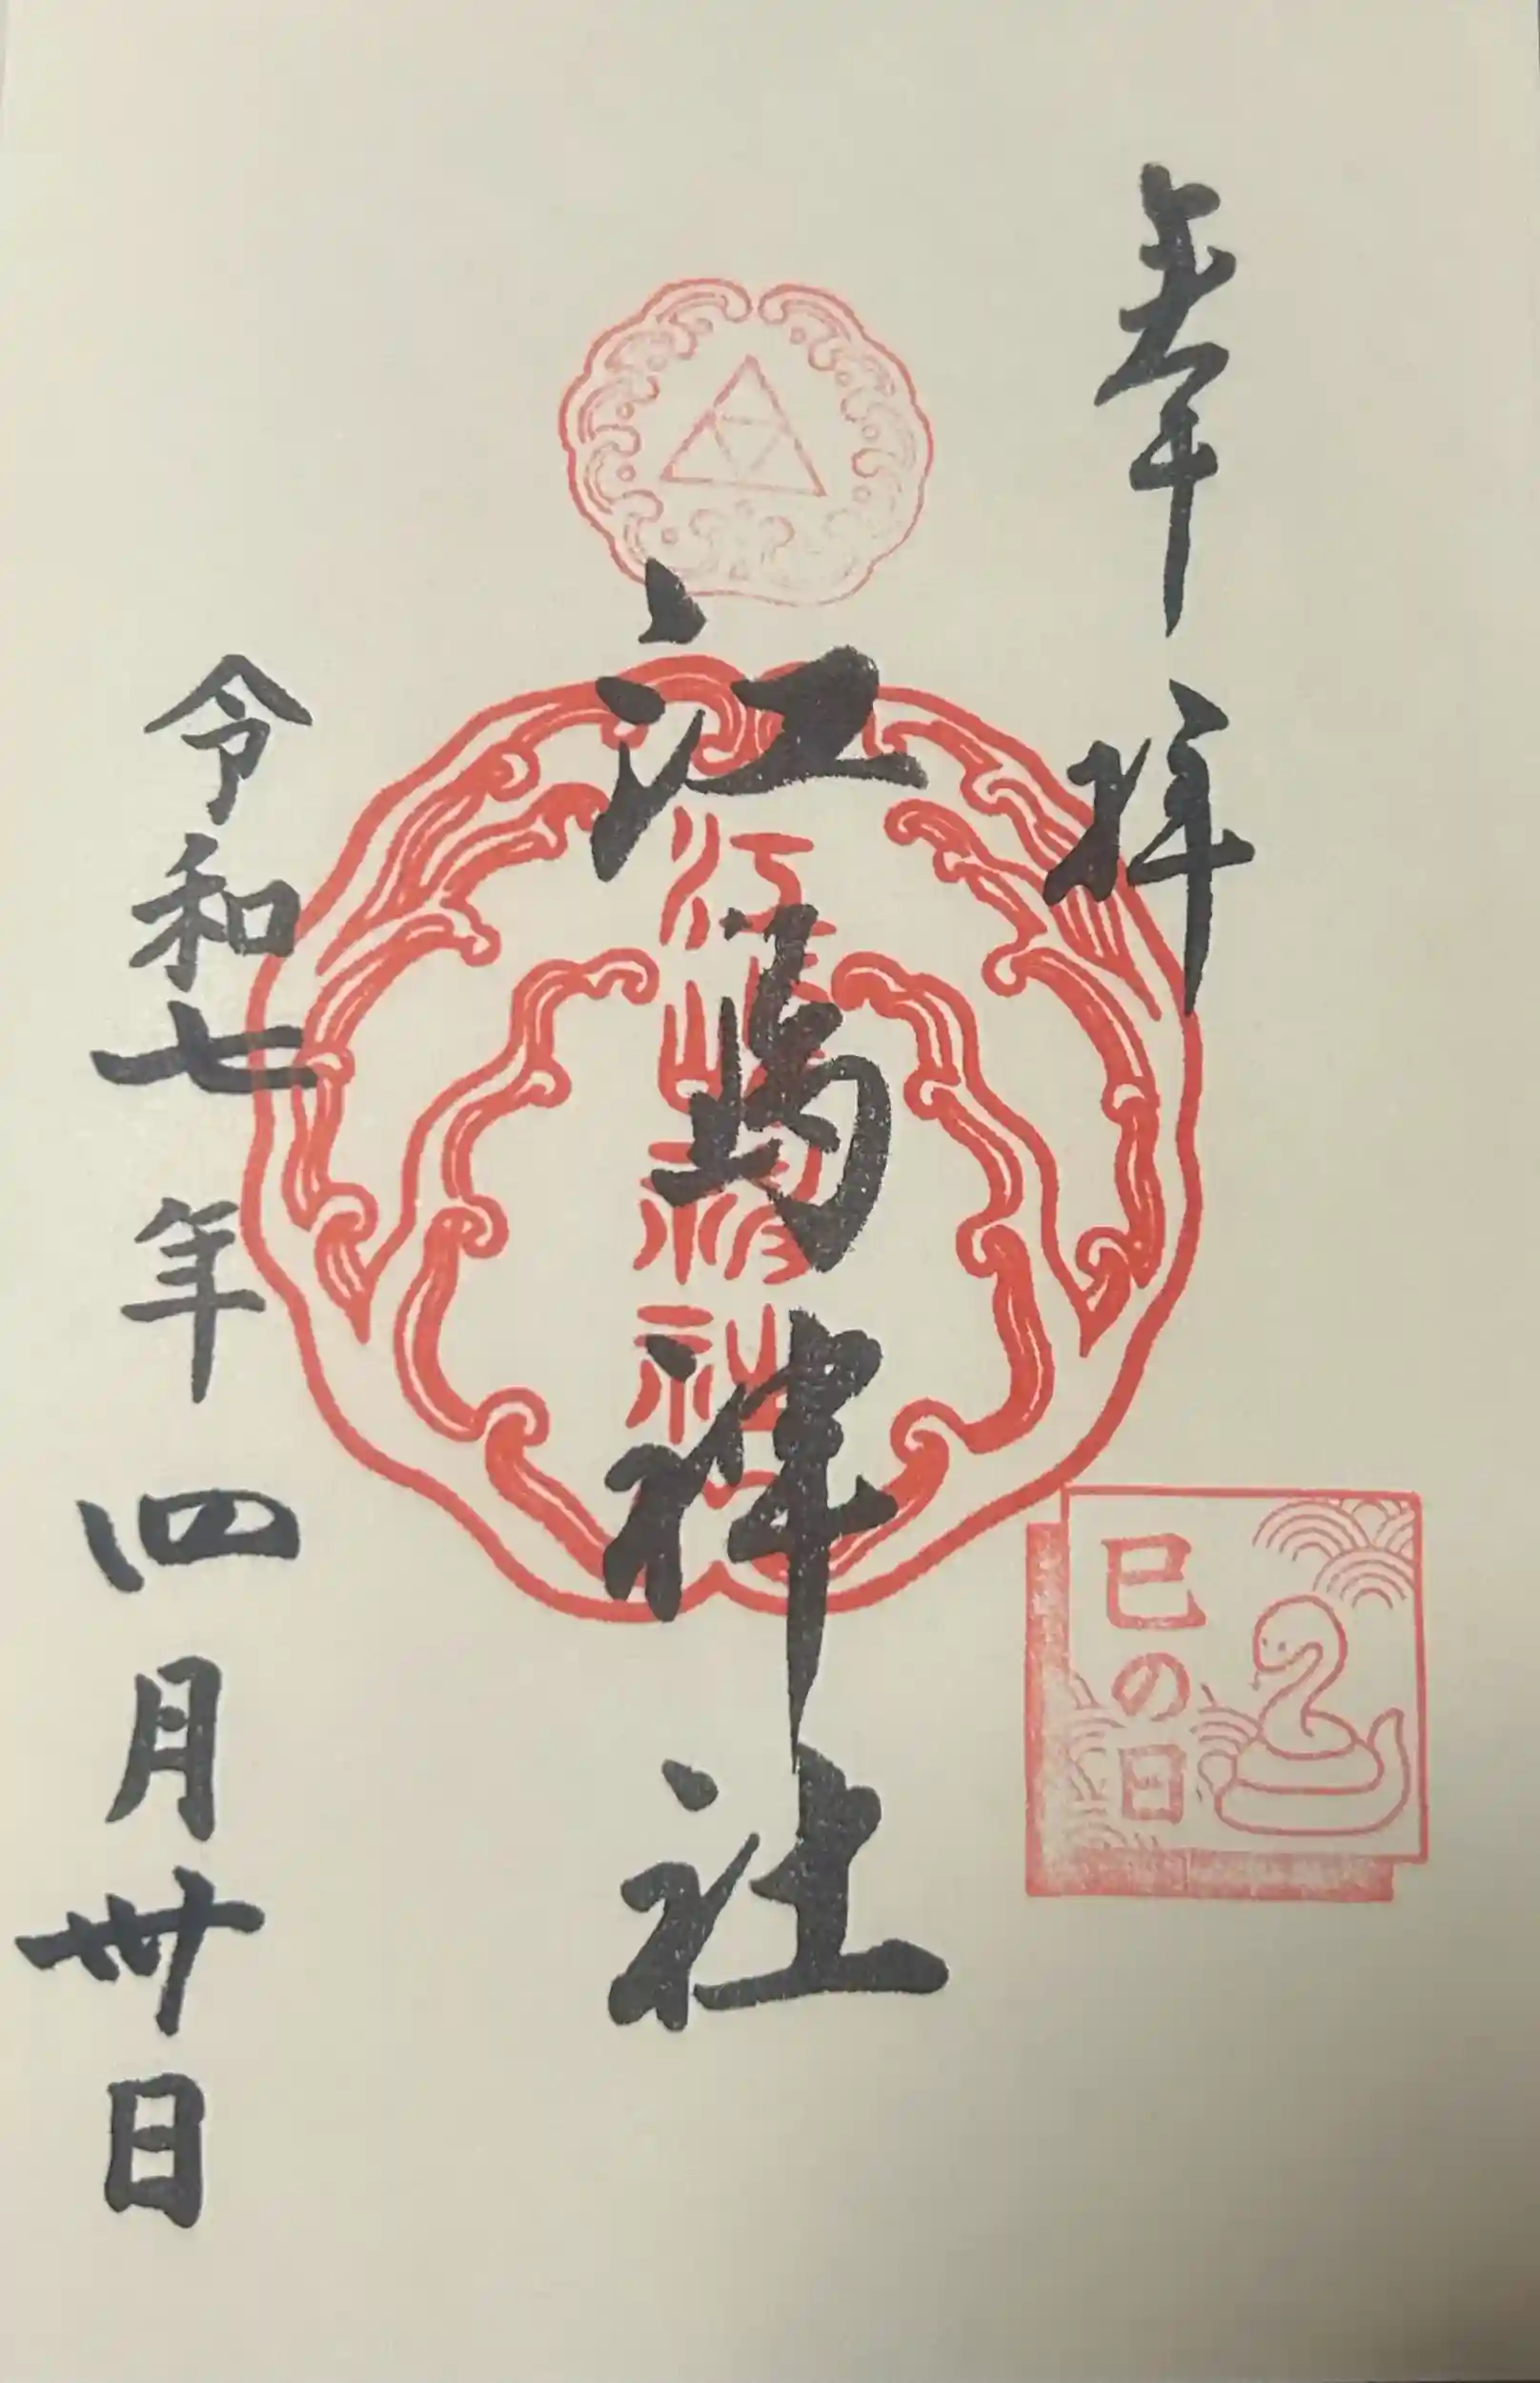 奉拝
江嶋神社
江嶋神社
令和七年四月卅日
巳の日